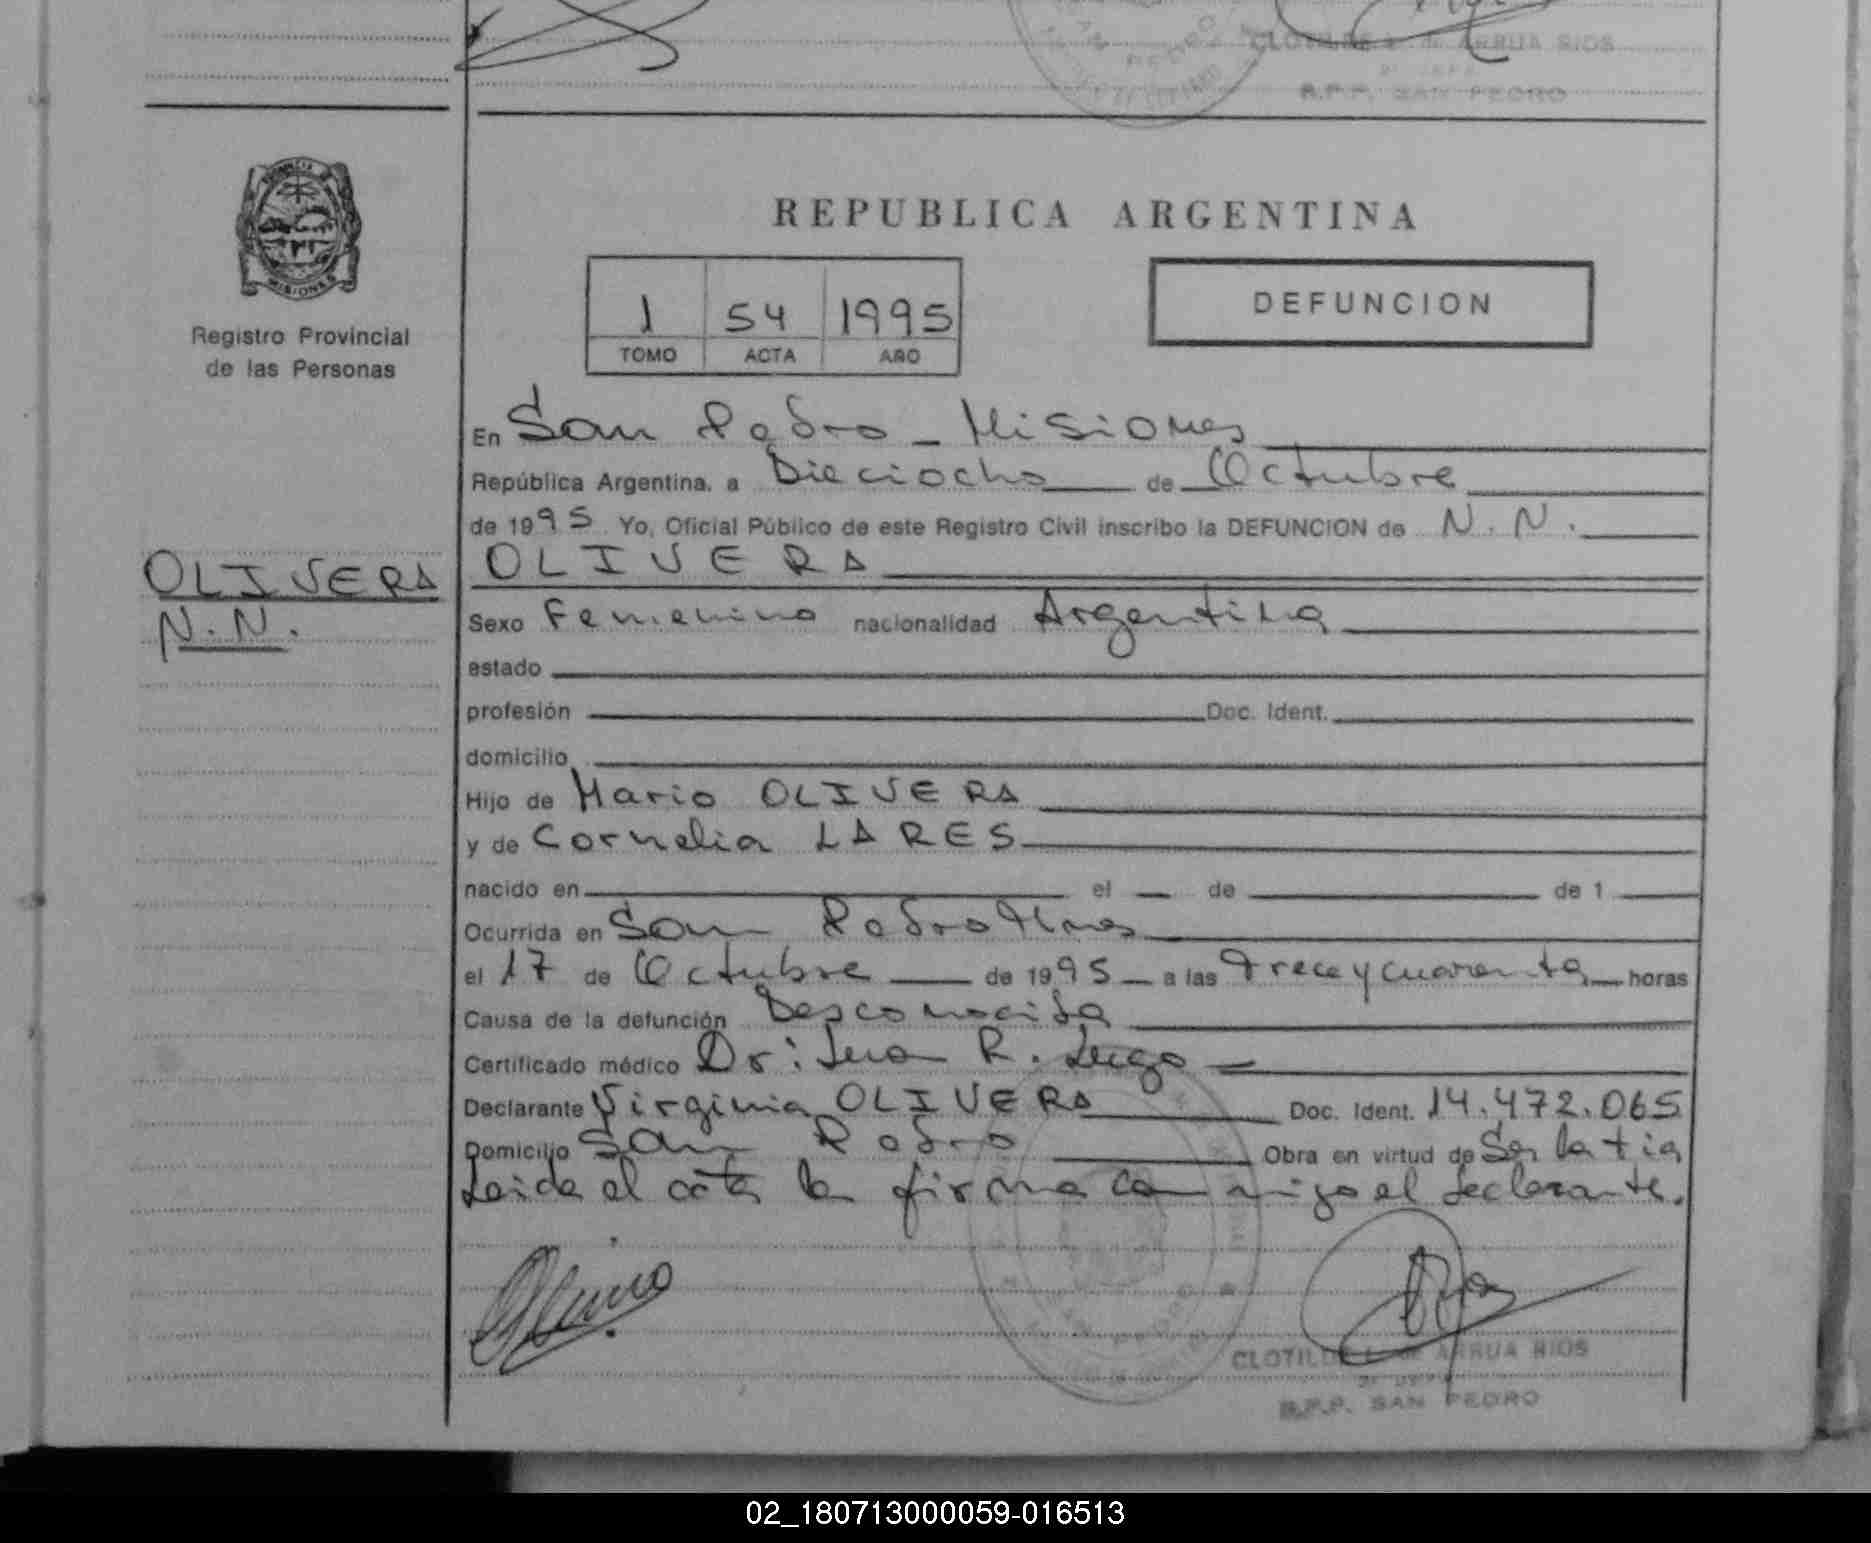 CLOTILDE L. de ARRUA RIOS
R.P.P. SAN PEDRO
PROVINCIA DE
MISIONES
Registro Provincial
de las Personas
REPUBLICA ARGENTINA
1 54 1995
TOMO ACTA AÑO
DEFUNCION
En San Pedro - Misiones
República Argentina, a Dieciocho de Octubre
de 1995 Yo, Oficial Público de este Registro Civil inscribo la DEFUNCION de N. N.
OLIVERA
OLIVERA
N.N.
Sexo Femenino nacionalidad Argentina
estado
profesión Doc. Ident.
domicilio
Hijo de Mario OLIVERA
y de Cornelia LARES
nacido en el de de 1
Ocurrida en San Pedro Mnes
el 17 de Octubre de 1995 a las trece y cuarenta horas
Causa de la defunción Desconocida
Certificado médico Dr: R. Lugo
Declarante Virginia OLIVERA Doc. Ident. 14.472.065
Domicilio San Pedro Obra en virtud de Ser la tia
Leida el acta la firma conmigo el declarante.
SAN PEDRO
CLOTILDE L. de ARRUA RIOS
R.P.P. SAN PEDRO
02_180713000059-016513